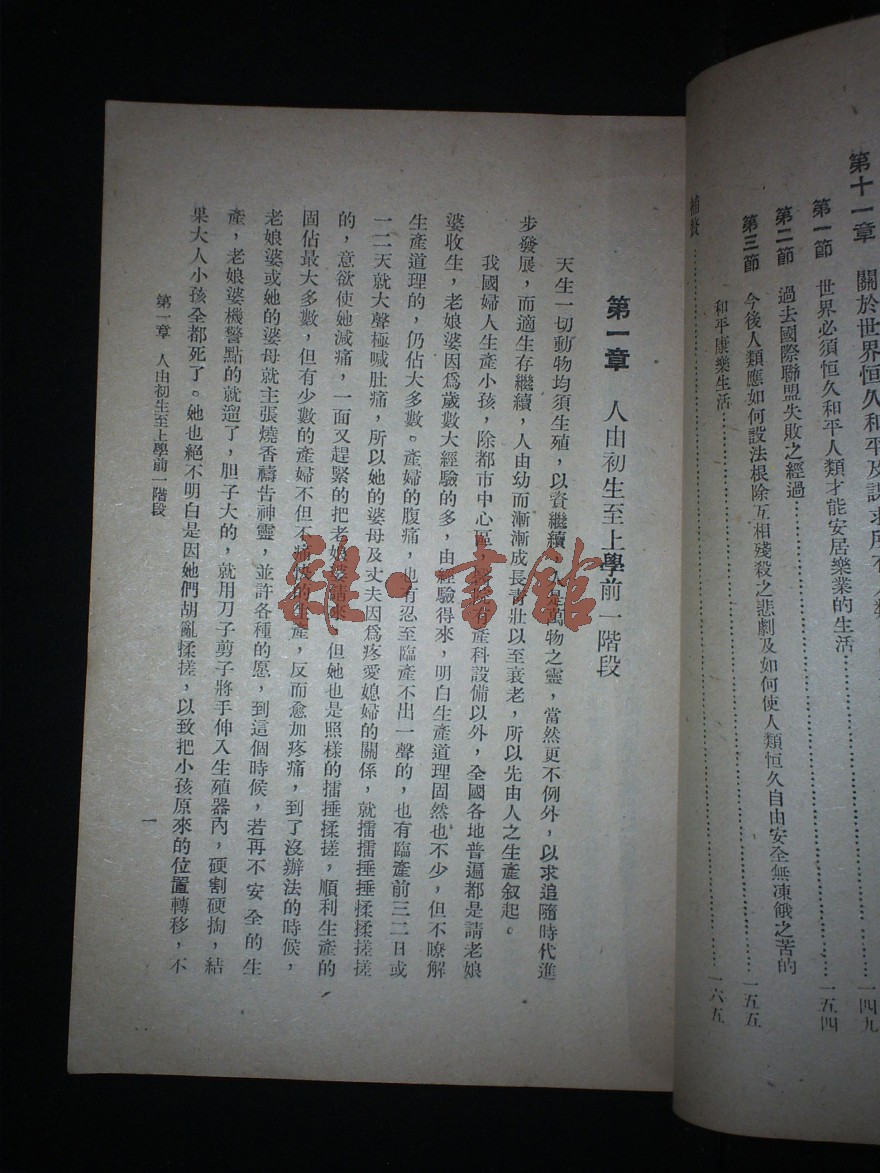 第十一章　關於世界恒久和平及謀求所有人類
第一節　世界必須恒久和平人類才能安居樂業的生活…………一四九
第二節　過去國際聯盟失敗之經過…………一五四
第三節　今後人類應如何設法根除互相殘殺之悲劇及如何使人類恒久自由安全無凍餓之苦的
和平康樂生活…………一五五
補發…………一六五
第一章　人由初生至上學前一階段
天生一切動物均須生殖，以資繼續，人是萬物之靈，當然更不例外，以求追隨時代進
步發展，而適生存繼續，人由幼而漸漸成長青壯以至衰老，所以先由人之生產叙起。
我國婦人生產小孩，除都市中心區，有產科設備以外，全國各地普遍都是請老娘
婆收生，老娘婆因爲歲數大經驗的多，由經驗得來，明白生產道理固然也不少，但不瞭解
生產道理的，仍佔大多數。產婦的腹痛，也有忍至臨產不出一聲的，也有臨產前三二日或
一二天就大聲極喊肚痛，所以她的婆母及丈夫因爲疼愛媳婦的關係，就擂擂捶捶揉揉搓搓
的，意欲使她減痛，一面又趕緊的把老娘婆請來，但她也是照樣的擂捶揉搓，順利生產的
固佔最大多數，但有少數的產婦不但不痛快的生產，反而愈加疼痛，到了沒辦法的時候，
老娘婆或她的婆母就主張燒香禱告神靈，並許各種的愿，到這個時候，若再不安全的生
產，老娘婆機警點的就溜了，胆子大的，就用刀子剪子將手伸入生殖器內，硬割硬掏，結
果大人小孩全都死了。她也絕不明白是因她們胡亂揉搓，以致把小孩原來的位置轉移，不
第一章　人由初生至上學前一階段
一
雜·書館